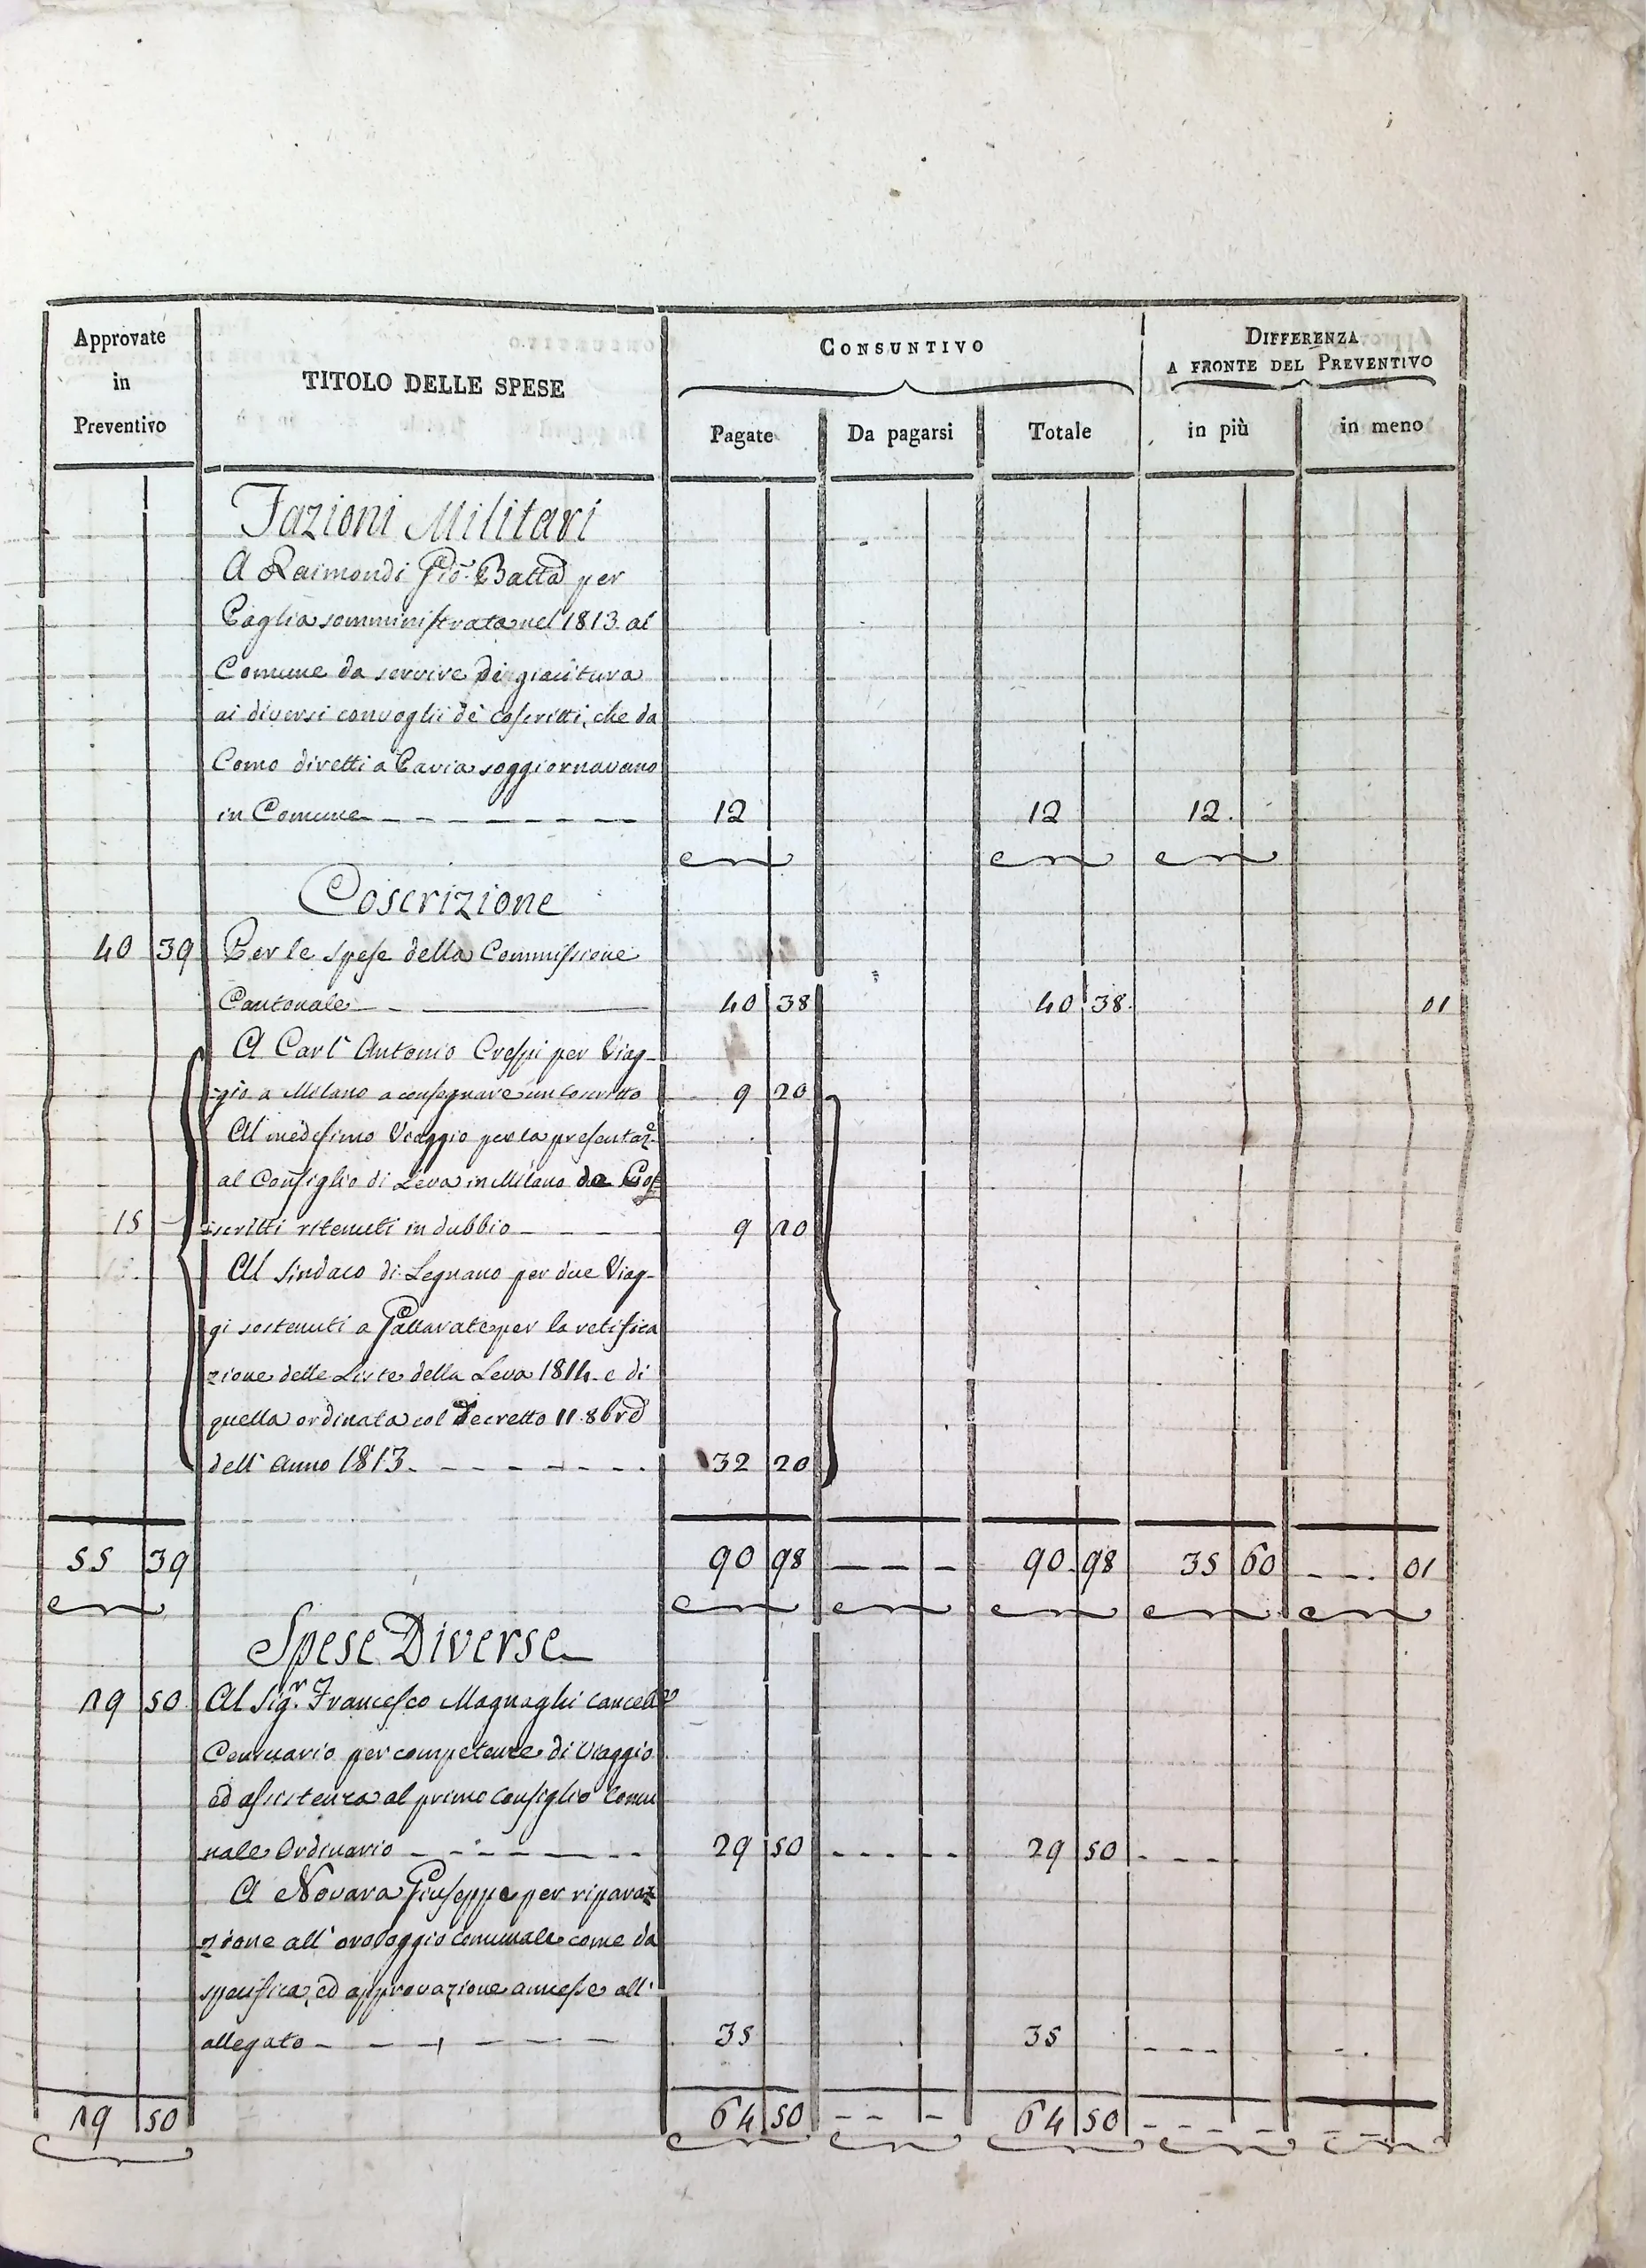 Approvate in Preventivo
TITOLO DELLE SPESE
CONSUNTIVO
DIFFERENZA A FRONTE DEL PREVENTIVO
Pagate Da pagarsi Totale in più in meno
Fazioni Militari
A Raimondi Gio. Batta per
Paglia somministrata nel 1813 al
Comune da servire di giacitura
ai diversi convogli de' coscritti, che da
Como diretti a Pavia soggiornavano
in Comune 12 12 12.
Coscrizione
40 39 Per le spese della Commissione
Cantonale 40 38 40 38. 01
A Carl' Antonio Crespi per Viag-
-gio a Milano a consegnare un Coscritto 9 20
Al medesimo Viaggio per la presentaz.e
al Consiglio di Leva in Milano de Cos
15 scritti ritenuti in dubbio 9 20
Al Sindaco di Legnano per due Viag-
gi sostenuti a Gallarate per la retifica
zione delle Liste della Leva 1814 e di
quella ordinata col Decretto 11 8bre
dell' Anno 1813. 32 20
55 39 90 98 90 98 35 60 01
Spese Diverse
29 50 Al Sig.r Francesco Magnaghi Cancell.e
Censuario per competenze di Viaggio
ed assistenza al primo Consiglio Comu
nale Ordinario 29 50 29 50
A Novara Giuseppe per riparaz
zione all' orologgio Comunale come da
specifica, ed approvazione annesse all'
allegato 35 35
29 50 64 50 64 50